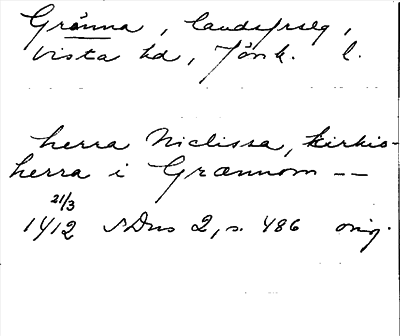 Gränna, landsfrslg,
Vista hd, Jönk. l.
herra Niclissa, kirkio-
herra i Grænnom --
21/3
1412 SDns 2, s. 486 orig.